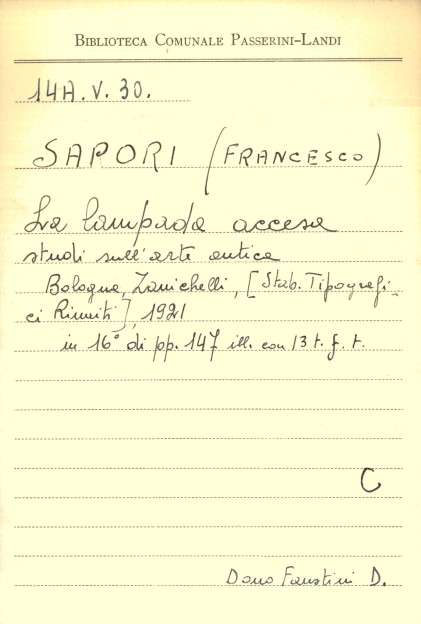 BIBLIOTECA COMUNALE PASSERINI-LANDI
14A.V.30.
SAPORI (FRANCESCO)
La lampada accesa
studi sull'arte antica
Bologna, Zanichelli, [Stab. Tipografi-
ci Riuniti], 1921
in 16° di pp. 147 ill. con 13 t. f. t.
C
Dono Faustini D.